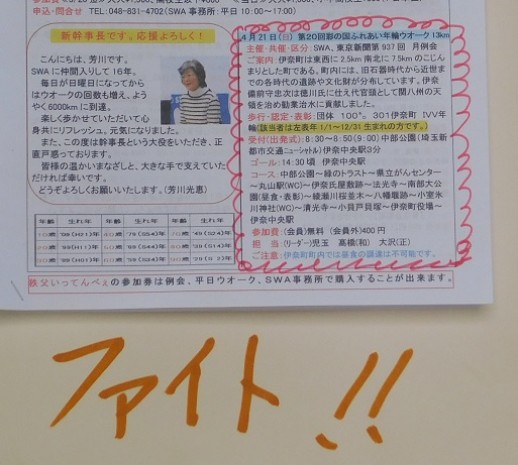 申込・問合せ TEL:048-831-4702(SWA事務所:平日10:00~17:00)
新幹事長です。応援よろしく!
こんにちは、芳川です。
SWAに仲間入りして16年。
毎日が日曜日になってから
はウオークの回数も増え、よう
やく6000kmに到達。
楽しく歩かせていただいて心
身共にリフレッシュ。元気になりました。
また、この度は幹事長という大役をいただき、正
直戸惑っております。
皆様の温かいまなざしと、大きな手で支えていた
だければ幸いです。
どうぞよろしくお願いいたします。(芳川光恵)
年齢 生れ年 年齢 生れ年 年齢 生れ年
4月21日(日) 第20回彩の国ふれあい年輪ウオーク 13km
主催・共催・区分:SWA、東京新聞第937回 月例会
ご案内:伊奈町は東西に2.5km南北に7.5kmのこじん
まりとした町である。町内には、旧石器時代から近世ま
での各時代の遺跡や文化財が分布しています。伊奈
備前守忠次は徳川氏に仕え代官頭として関八州の天
領を治め勧業治水に貢献しました。
歩行・認定・表彰:団体 100㌫ 301伊奈町 IVV年
輪(該当者は左表年1/1~12/31生まれの方です。)
受付(出発式):8:30~8:50(9:00)中部公園(埼玉新
都市交通ニューシャトル)伊奈中央駅3分
ゴール:14:30頃 伊奈中央駅
コース:中部公園~緑のトラスト~県立がんセンター
~丸山駅(WC)~伊奈氏屋敷跡~法光寺~南部大公
園(昼食・表彰)~綾瀬川桜並木~八幡堰跡~小室氷
川神社(WC)~清光寺~小貝戸貝塚~伊奈町役場~
伊奈中央駅
参加費:(会員)無料 (会員外)400円
担当:(リーダー)児玉 高橋(和) 大沢(正)
ご注意:伊奈町町内では昼食の調達は不可能です。
秩父いってんべぇの参加券は例会、平日ウオーク、SWA事務所で購入することが出来ます。
ファイト!!